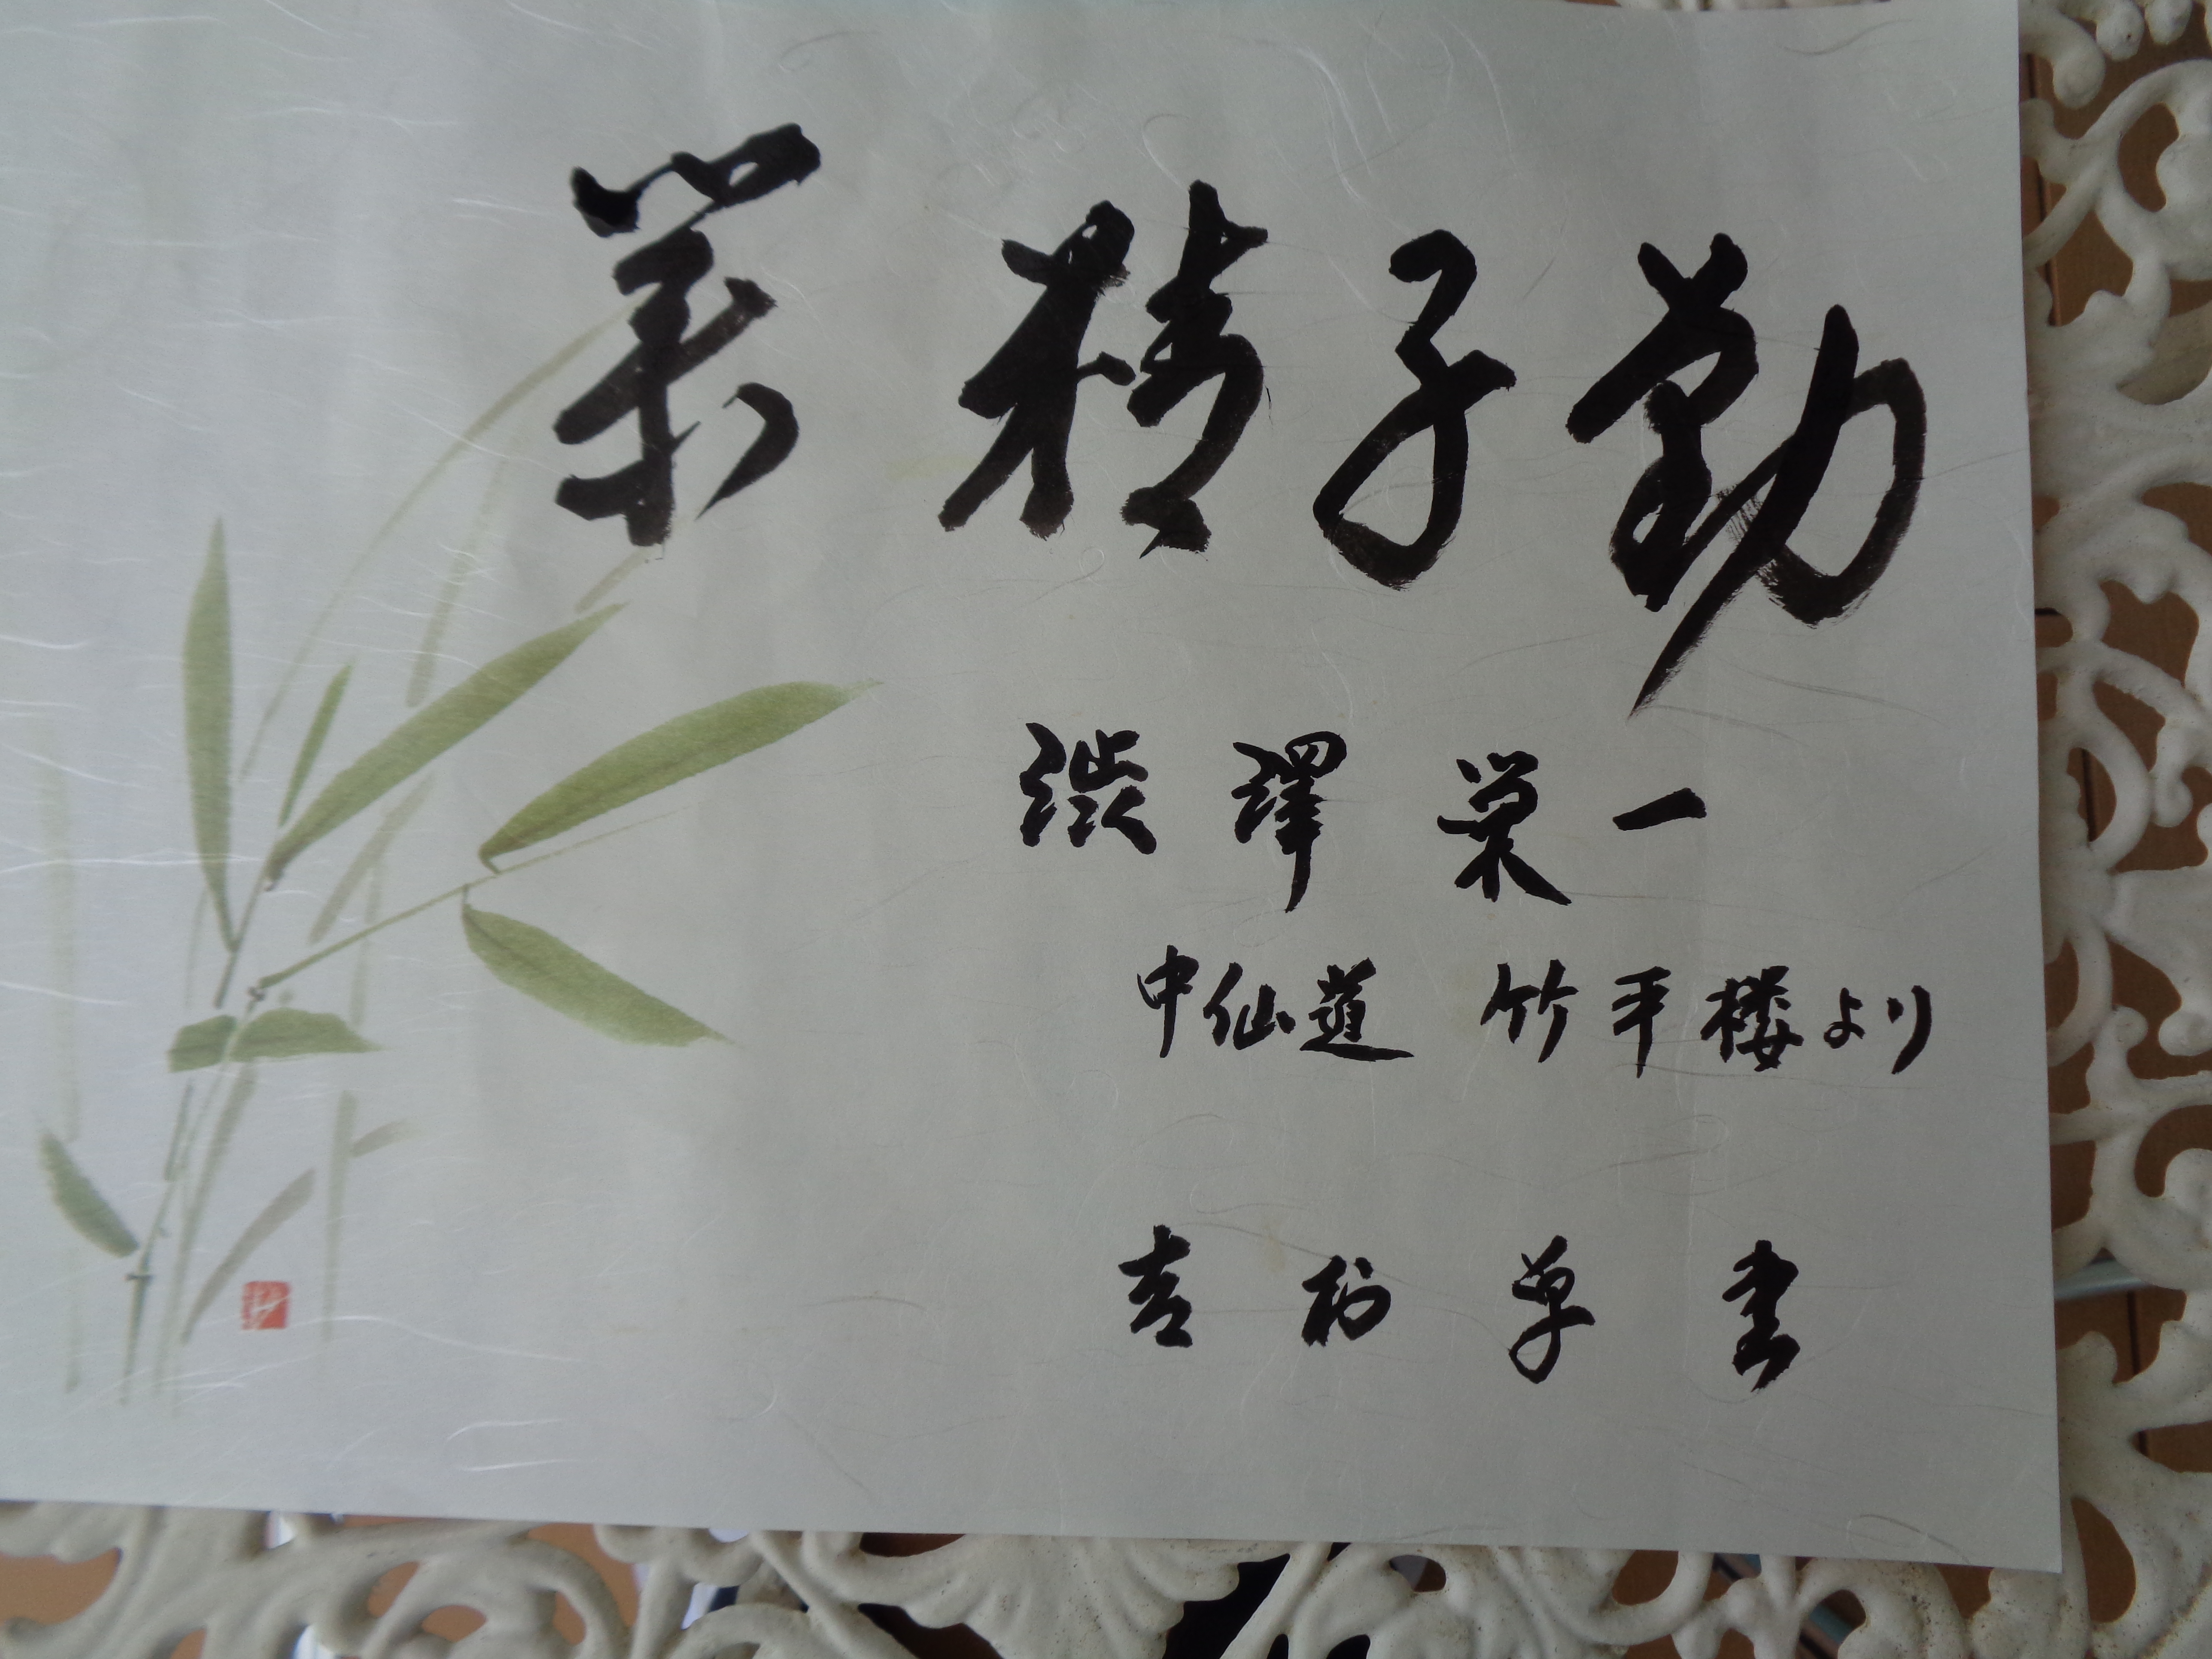 業精于勤
渋澤栄一
中仙道 竹平楼より
吉村草書